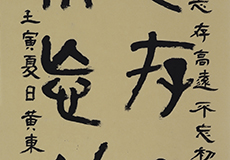 志存高遠不忘初
存
忘
壬寅夏日黄東